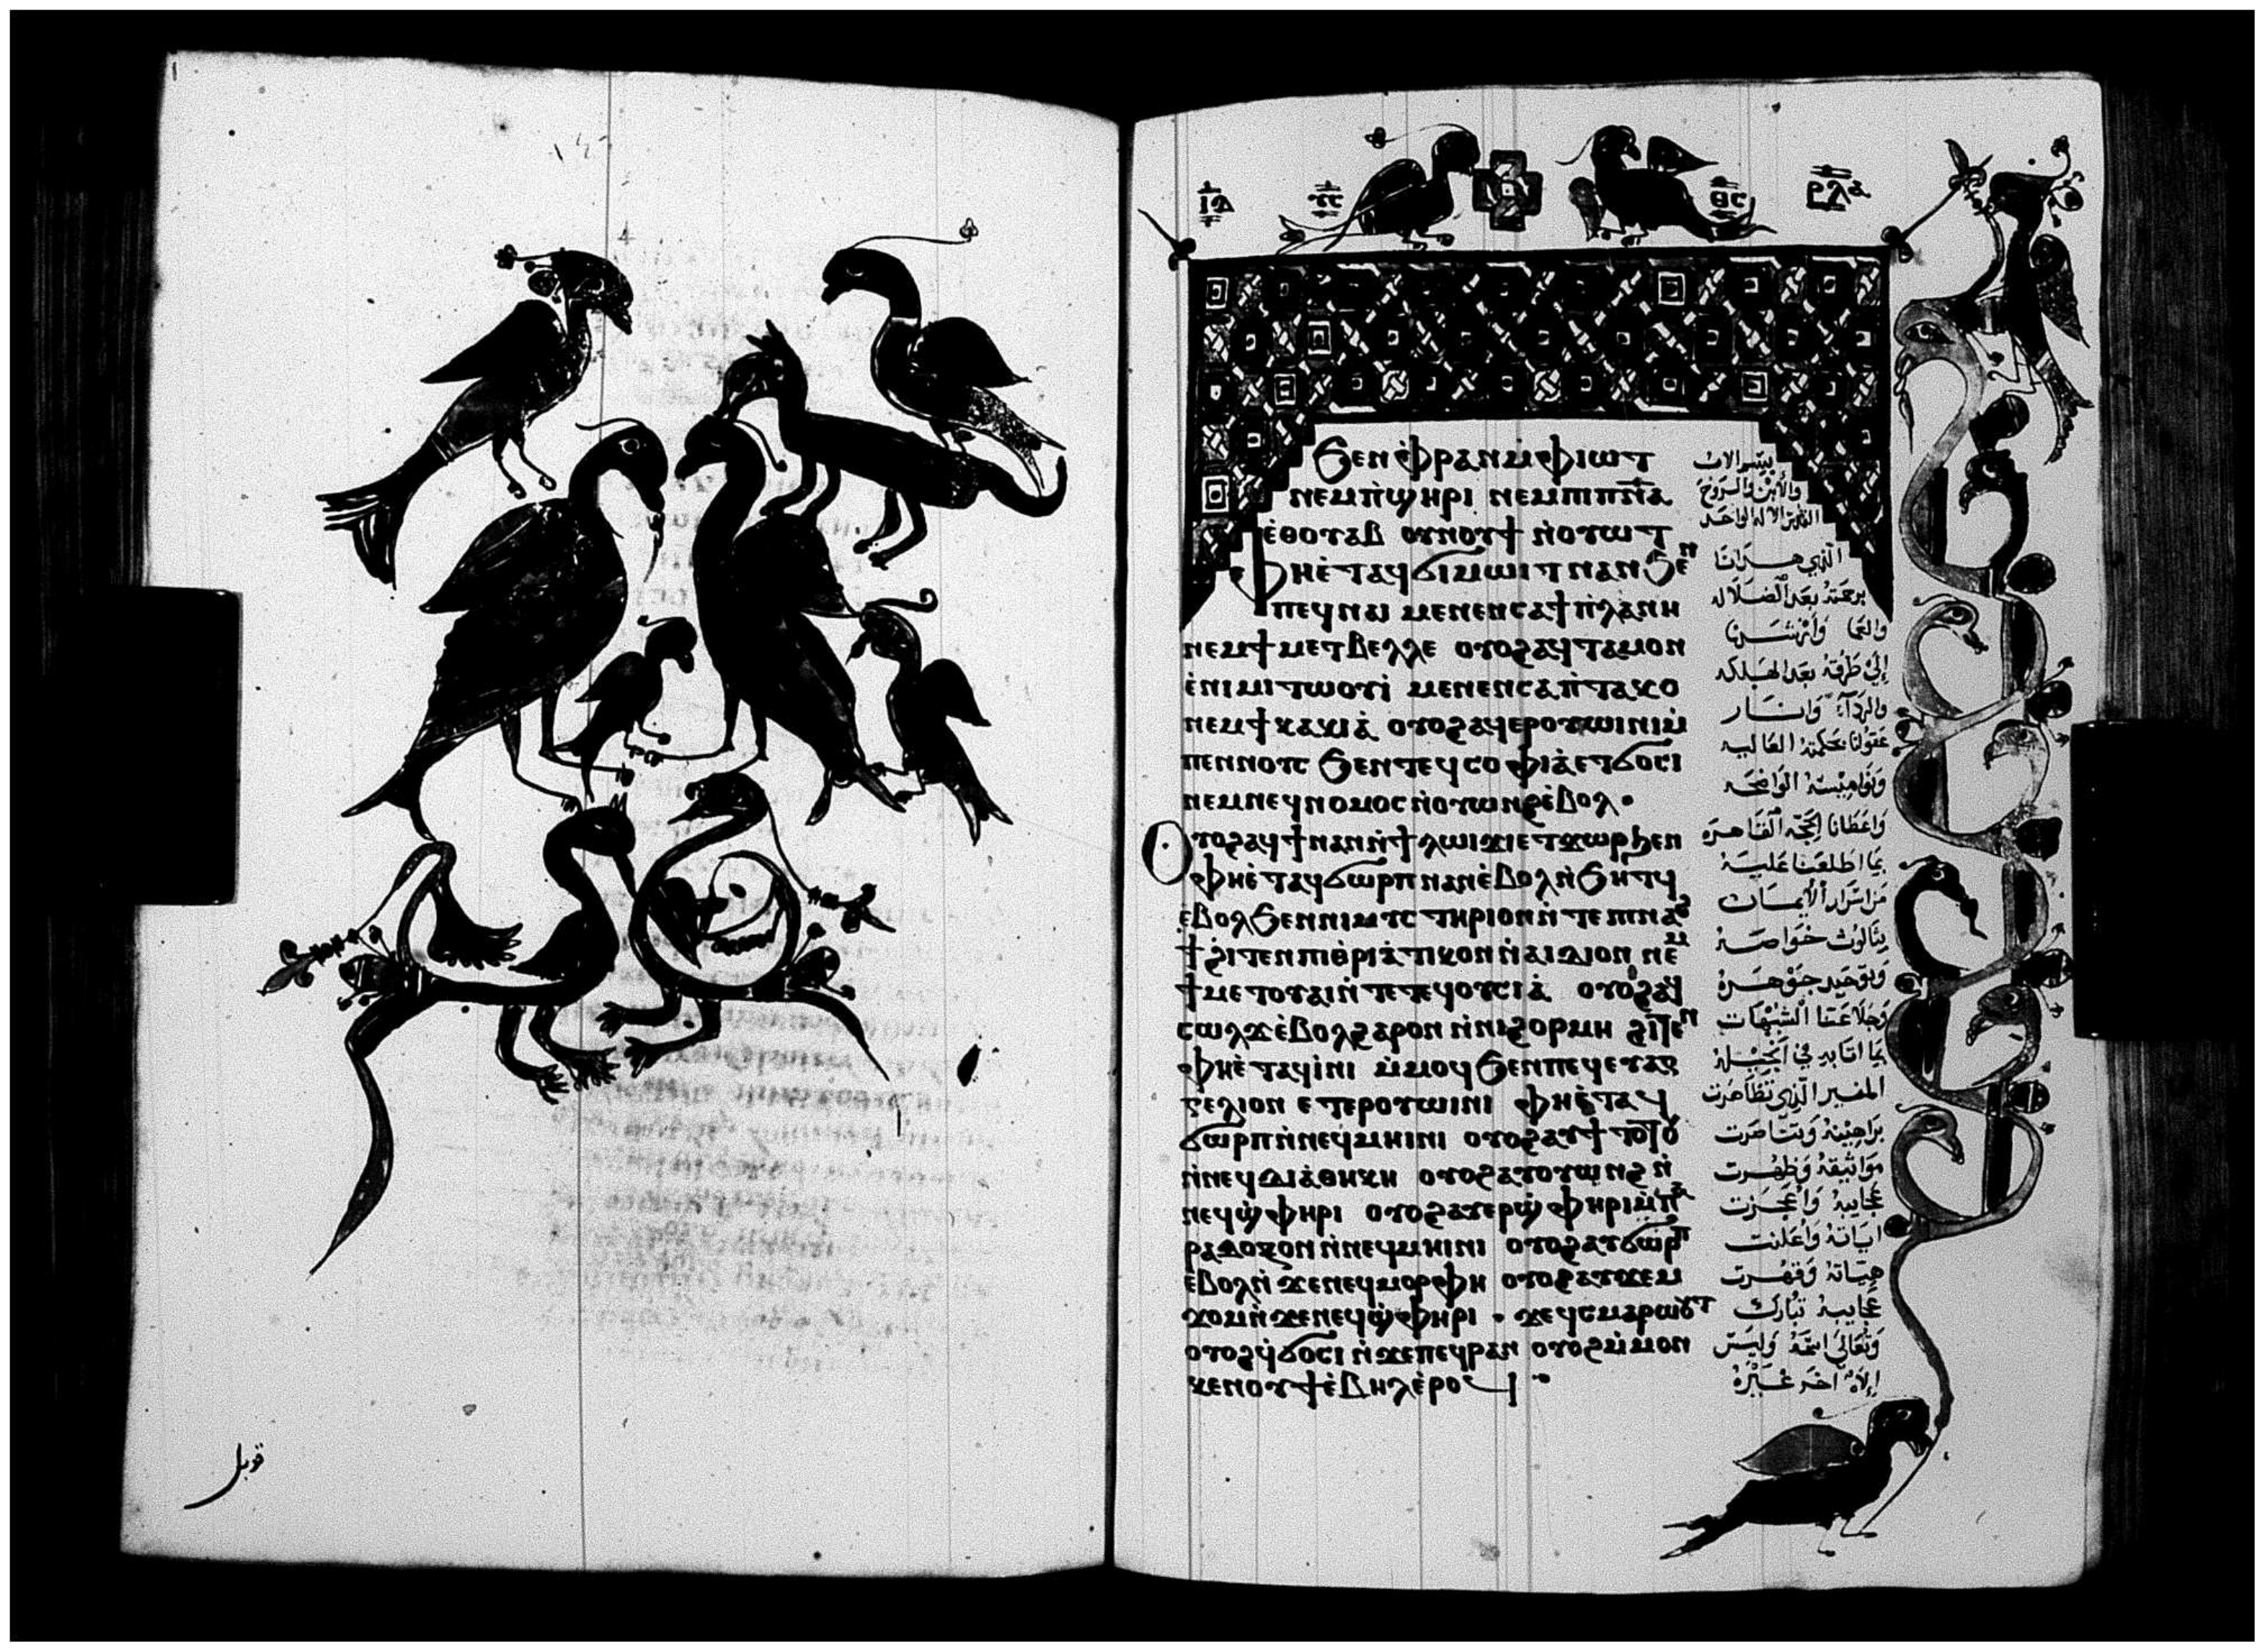 قوبل
ⲓⲇ ⲩⲥ ⲑⲥ ⲣⲗⲁ
Ϧⲉⲛ ⲫⲣⲁⲛ ⲙ̀ⲫⲓⲱⲧ
ⲛⲉⲙ ⲡ̀ϣⲏⲣⲓ ⲛⲉⲙ ⲡⲓⲡⲛ̅ⲁ̅
ⲉ̀ⲑⲟⲩⲁⲃ ⲟⲩⲛⲟⲩϯ ⲛ̀ⲟⲩⲱⲧ
Ⲫⲏⲉ̀ⲧⲁϥϭⲓⲙⲱⲓⲧ ⲛⲁⲛ ϧⲉⲛ
ⲡⲉϥⲛⲁⲓ ⲙⲉⲛⲉⲛⲥⲁ ϯⲡ̀ⲗⲁⲛⲏ
ⲛⲉⲙ ϯⲙⲉⲧⲃⲉⲗⲗⲉ ⲟⲩⲟϩ ⲁϥⲧⲁⲙⲟⲛ
ⲉ̀ⲛⲓⲙⲓⲧⲱⲟⲩⲓ̀ ⲙⲉⲛⲉⲛⲥⲁ ⲡ̀ⲧⲁⲕⲟ
ⲛⲉⲙ ϯⲕⲁⲕⲓⲁ̀ ⲟⲩⲟϩ ⲁϥⲉⲣⲟⲩⲱⲓⲛⲓ ⲙ̀
ⲡⲉⲛⲛⲟⲩⲥ ϧⲉⲛ ⲧⲉϥⲥⲟⲫⲓⲁ̀ ⲉⲧϭⲟⲥⲓ
ⲛⲉⲙ ⲛⲉϥⲛⲟⲙⲟⲥ ⲛ̀ⲟⲩⲱⲛϩ ⲉ̀ⲃⲟⲗ·
Ⲟⲩⲟϩ ⲁϥϯ ⲛⲁⲛ ⲛ̀ϯⲗⲱⲓϫⲓ ⲉⲧϫⲱⲣ ϧⲉⲛ
ⲫⲏⲉ̀ⲧⲁϥϭⲱⲣⲡ ⲛⲁⲛ ⲉ̀ⲃⲟⲗ ⲛ̀ϧⲏⲧϥ
ⲉ̀ⲃⲟⲗ ϧⲉⲛ ⲛⲓⲙⲩⲥⲧⲏⲣⲓⲟⲛ ⲛ̀ⲧⲉ ⲡⲓⲛⲁϩ
ϯ ϩⲓⲧⲉⲛ ⲡⲓⲑⲣⲓⲁ̀ⲧⲓⲕⲟⲛ ⲛ̀ⲁⲓⲇⲓⲟⲛ ⲛⲉⲙ
ϯⲙⲉⲧⲟⲩⲁⲓ ⲛ̀ⲧⲉ ⲧⲉϥⲟⲩⲥⲓⲁ̀ ⲟⲩⲟϩ ⲁϥ
ⲥⲱⲗϫ ⲉ̀ⲃⲟⲗϩⲁⲣⲟⲛ ⲛ̀ⲛⲓϩⲟⲣⲙⲏ ϩⲓⲧⲉⲛ
ⲫⲏⲉ̀ⲧⲁϥⲓ̀ⲛⲓ ⲙ̀ⲙⲟϥ ϧⲉⲛ ⲡⲉϥⲉⲩⲁⲅ
ⲅⲉⲗⲓⲟⲛ ⲉⲧⲉⲣⲟⲩⲱⲓⲛⲓ ⲫⲏⲉ̀ⲧⲁϥ
ϭⲱⲣⲡ ⲛ̀ⲛⲉϥⲙⲏⲓⲛⲓ ⲟⲩⲟϩ ⲁⲩϯⲧⲟⲧⲟⲩ
ⲛ̀ⲛⲉϥⲇⲓⲁ̀ⲑⲏⲕⲏ ⲟⲩⲟϩ ⲁⲩⲟⲩⲱⲛϩ ⲛ̀
ⲛⲉϥϣ̀ⲫⲏⲣⲓ ⲟⲩⲟϩ ⲁⲩⲉⲣϣ̀ⲫⲏⲣⲓ ⲙ̀ⲡⲁ
ⲣⲁⲇⲟⲝⲟⲛ ⲛ̀ⲛⲉϥⲙⲏⲓⲛⲓ ⲟⲩⲟϩ ⲁⲩϭⲱⲣⲡ
ⲉ̀ⲃⲟⲗ ⲛ̀ϫⲉ ⲛⲉϥⲙⲟⲣⲫⲏ ⲟⲩⲟϩ ⲁⲩϫⲉⲙ
ϫⲟⲙ ⲛ̀ϫⲉ ⲛⲉϥϣ̀ⲫⲏⲣⲓ · ϫⲉ ϥⲥⲙⲁⲣⲱⲟⲩⲧ
ⲟⲩⲟϩ ϥ̀ϭⲟⲥⲓ ⲛ̀ϫⲉ ⲡⲉϥⲣⲁⲛ ⲟⲩⲟϩ ⲙ̀ⲙⲟⲛ
ⲕⲉⲛⲟⲩϯ ⲉ̀ⲃⲏⲗ ⲉ̀ⲣⲟϥ
بسم الاب
والابن والروح
القدس الاله الواحد
الذي هدانا
برحمته بعد الضلاله
والعما وارشدنا
إلى طرقه بعد الهلكه
والرداءَ وانار
عقولنا بحكمته العاليه
ونواميسه الواضحه
واعطانا الحجه القاهره
بما اطلعنا عليه
من اسرار الايمان
بثالوث خواصه
وتوحيد جوهره
وجلا عنا الشبهات
بما اتا به في انجيله
المنير الذي تظاهرت
براهينه وتناصرت
مواثيقه وظهرت
عجايبه واعجزت
اياته واعلنت
هياته وقهرت
عجايبه تبارك
وتعالى اسمه وليس
إلاه اخر غيره